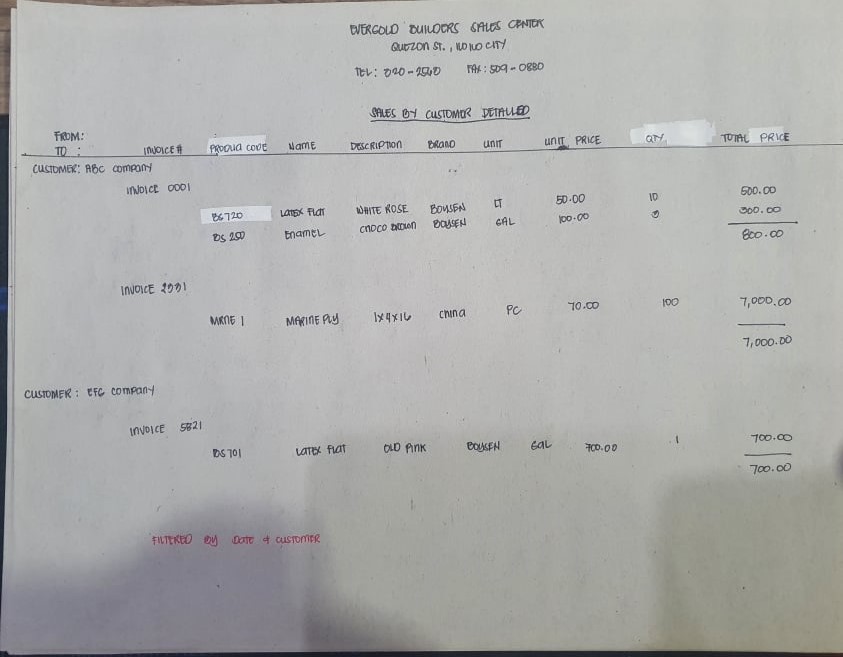 EVERGOLD BUILDERS SALES CENTER
QUEZON ST., ILOILO CITY
TEL: 320-2560 FAX: 509-0880
SALES BY CUSTOMER DETAILED
FROM:
TO : INVOICE # PRODUCT CODE NAME DESCRIPTION BRAND UNIT UNIT PRICE QTY. TOTAL PRICE
CUSTOMER: ABC COMPANY
INVOICE 0001
BS720 LATEX FLAT WHITE ROSE BOYSEN LT 50.00 10 500.00
BS 250 ENAMEL CHOCO BROWN BOYSEN GAL 100.00 3 300.00
800.00
INVOICE
MRNE 1 MARINE PLY 1x4x16 CHINA PC 70.00 100 7,000.00
7,000.00
CUSTOMER: EFG COMPANY
INVOICE 5821
BS701 LATEX FLAT OLD PINK BOYSEN GAL 700.00 1 700.00
700.00
FILTERED BY DATE & CUSTOMER